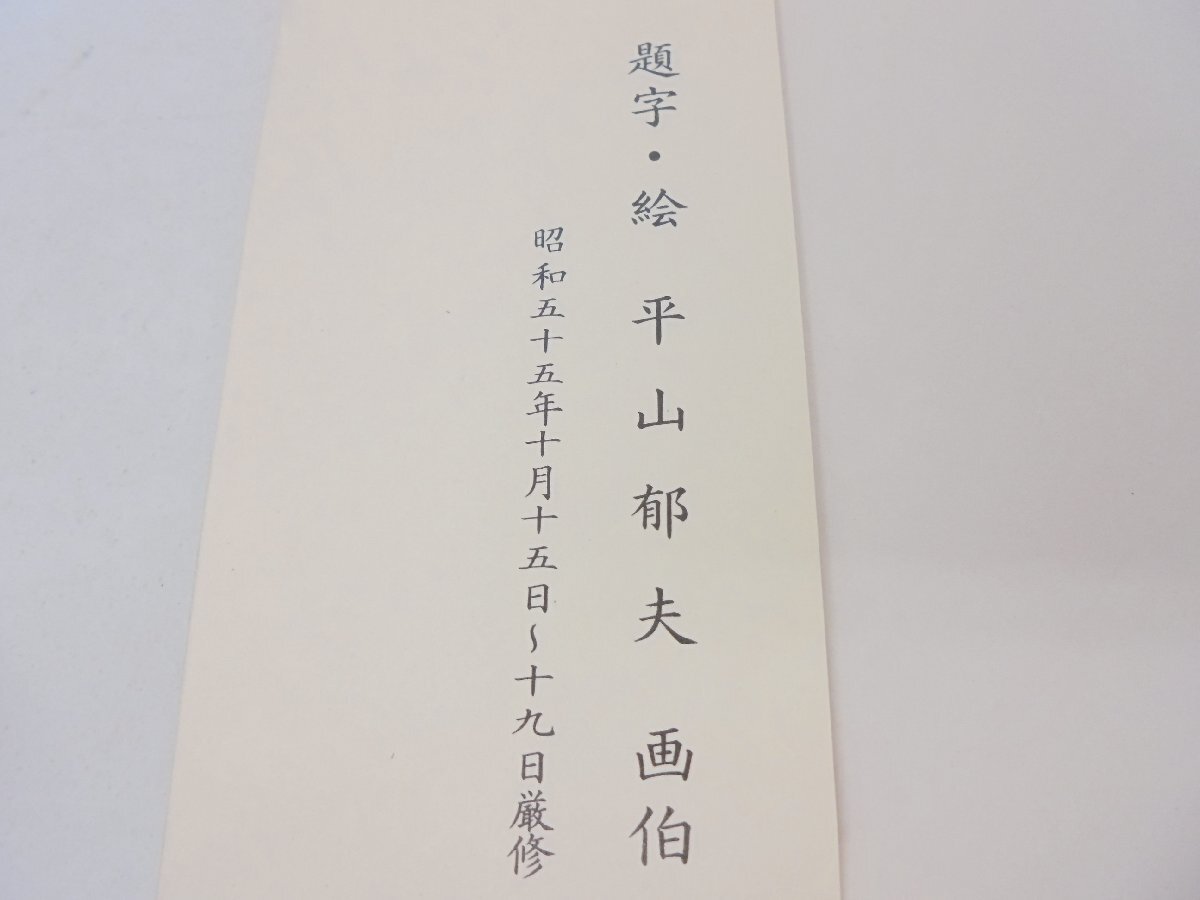 題字・絵 平山郁夫 画伯
昭和五十五年十月十五日～十九日厳修